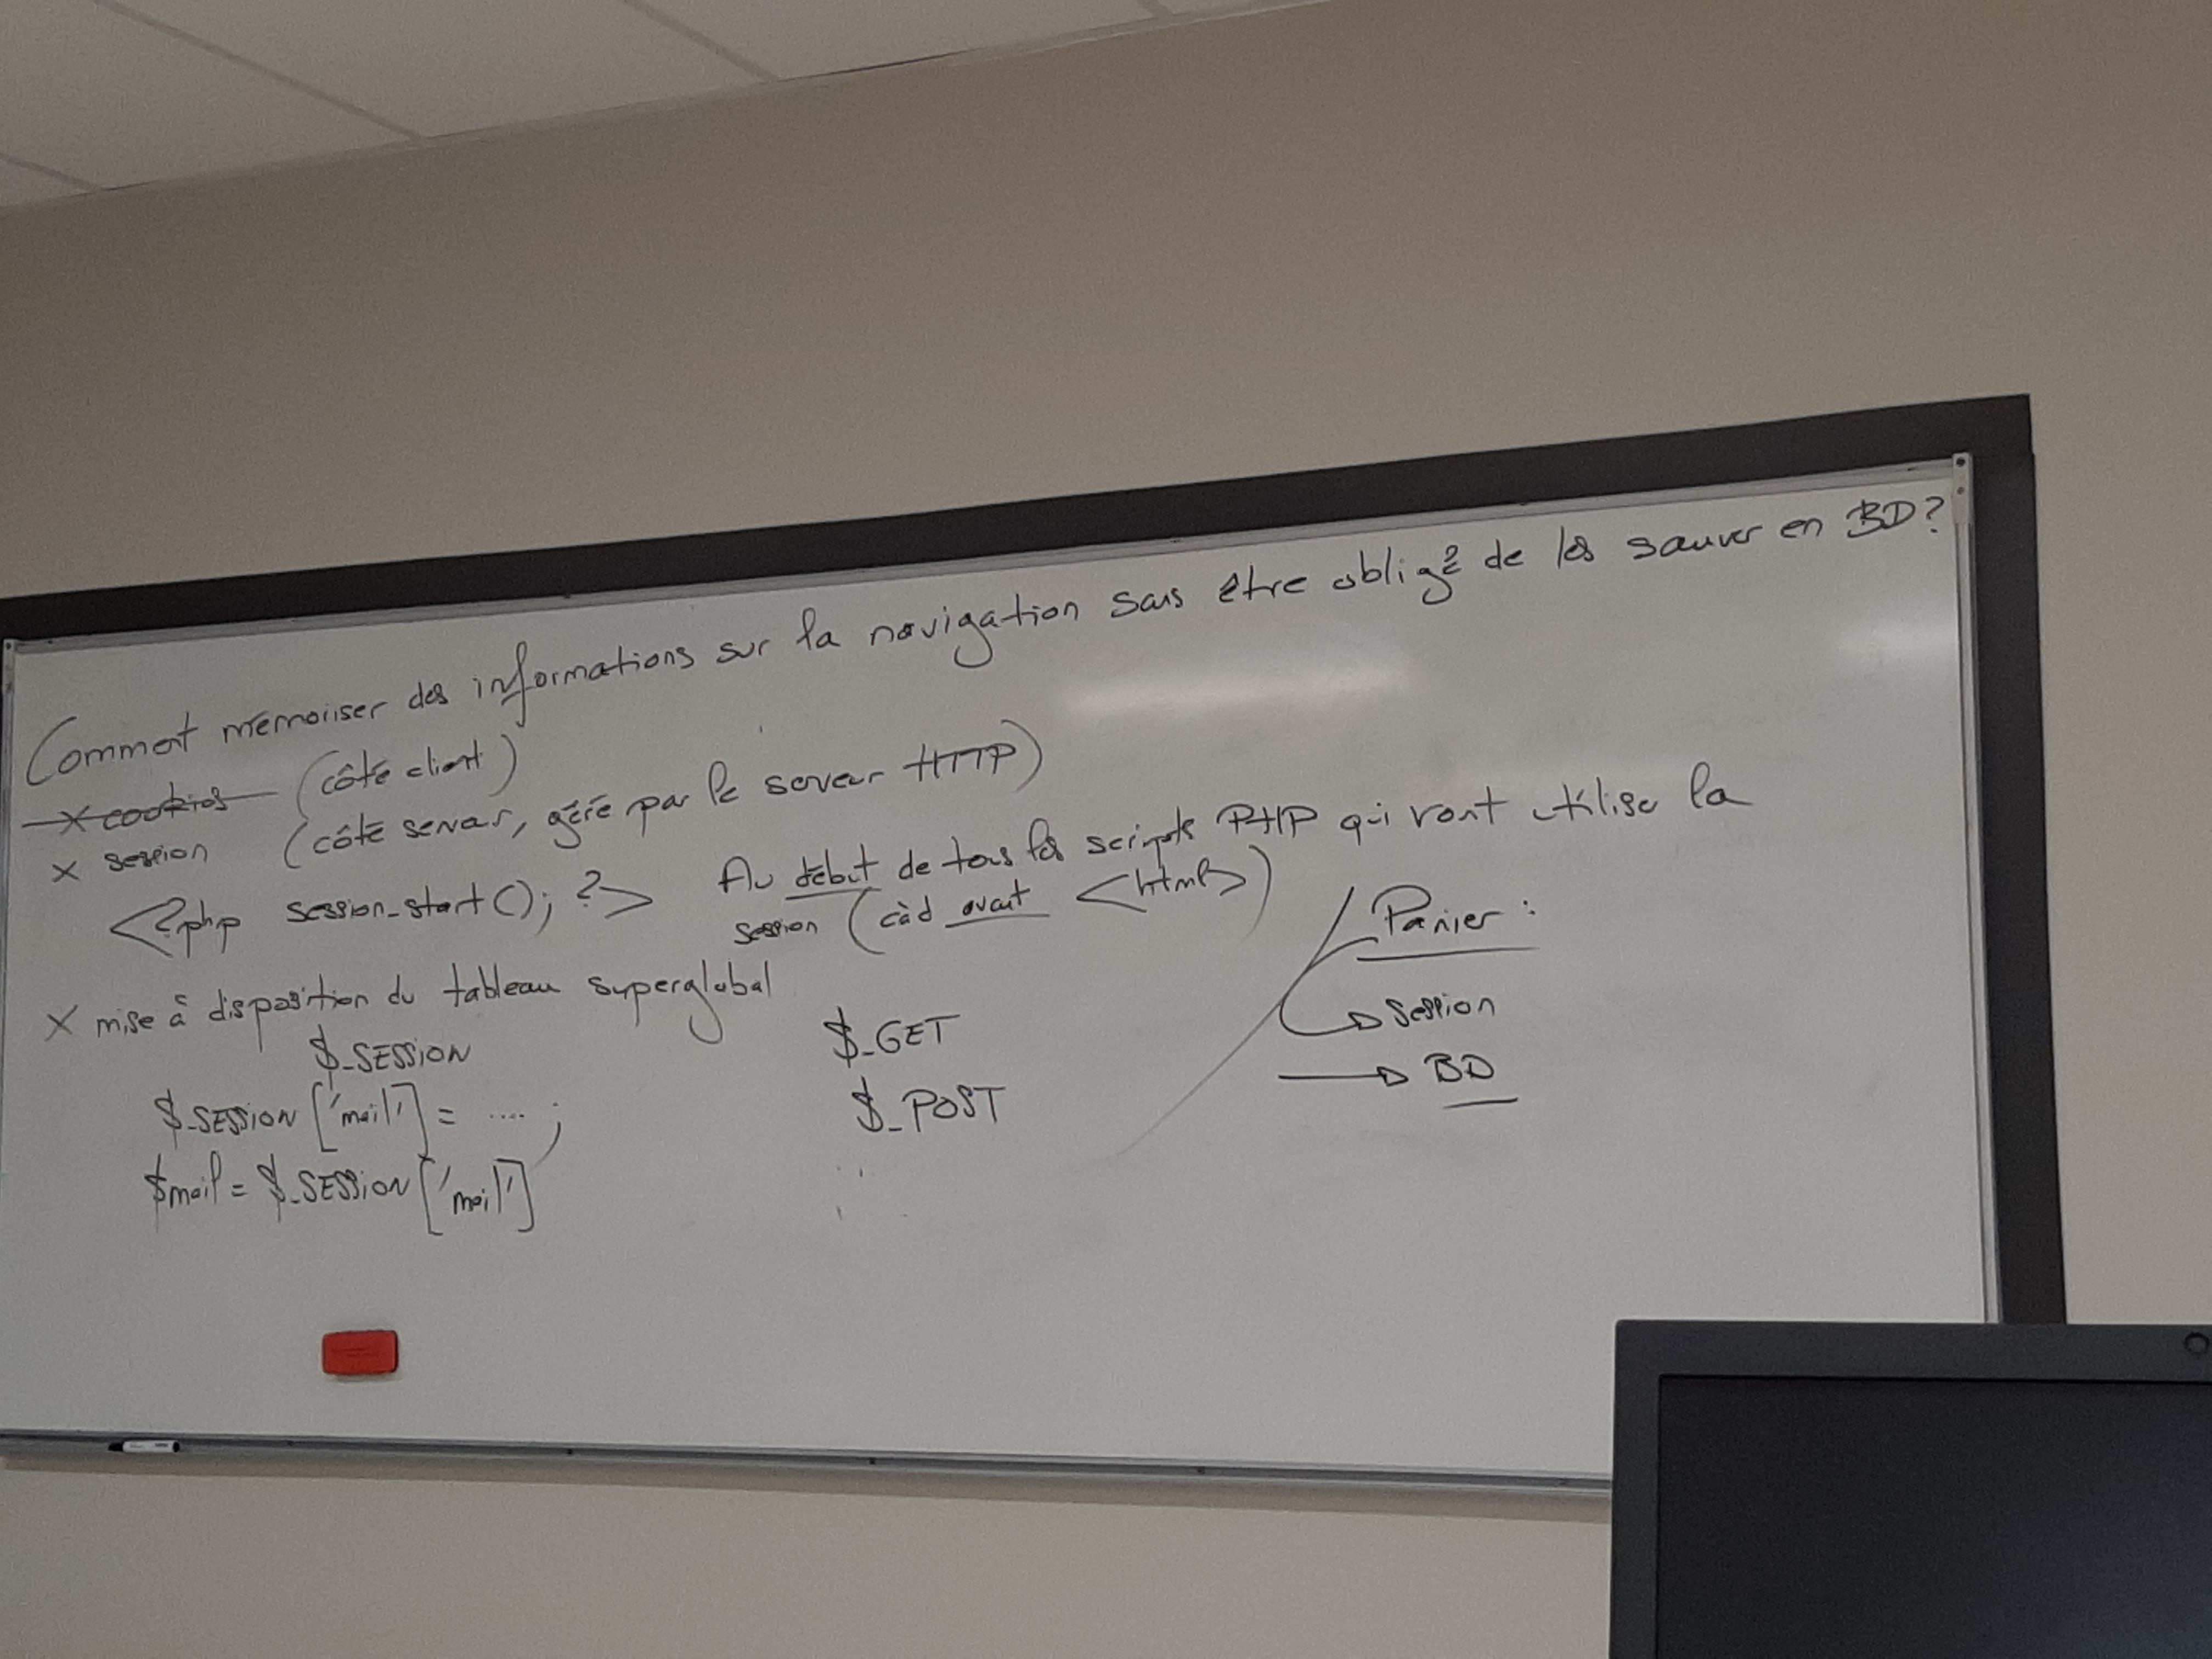 Comment mémoriser des informations sur la navigation sans être obligé de les sauver en BD?
x cookies (côté client)
x session (côté serveur, géré par le serveur HTTP)
<?php session_start(); ?> Au début de tous les scripts PHP qui vont utiliser la
session (càd avant <html>)
x mise à disposition du tableau superglobal
$_SESSION
$_SESSION['mail'] = ....;
$mail = $_SESSION['mail']
$_GET
$_POST
Panier :
session
BD